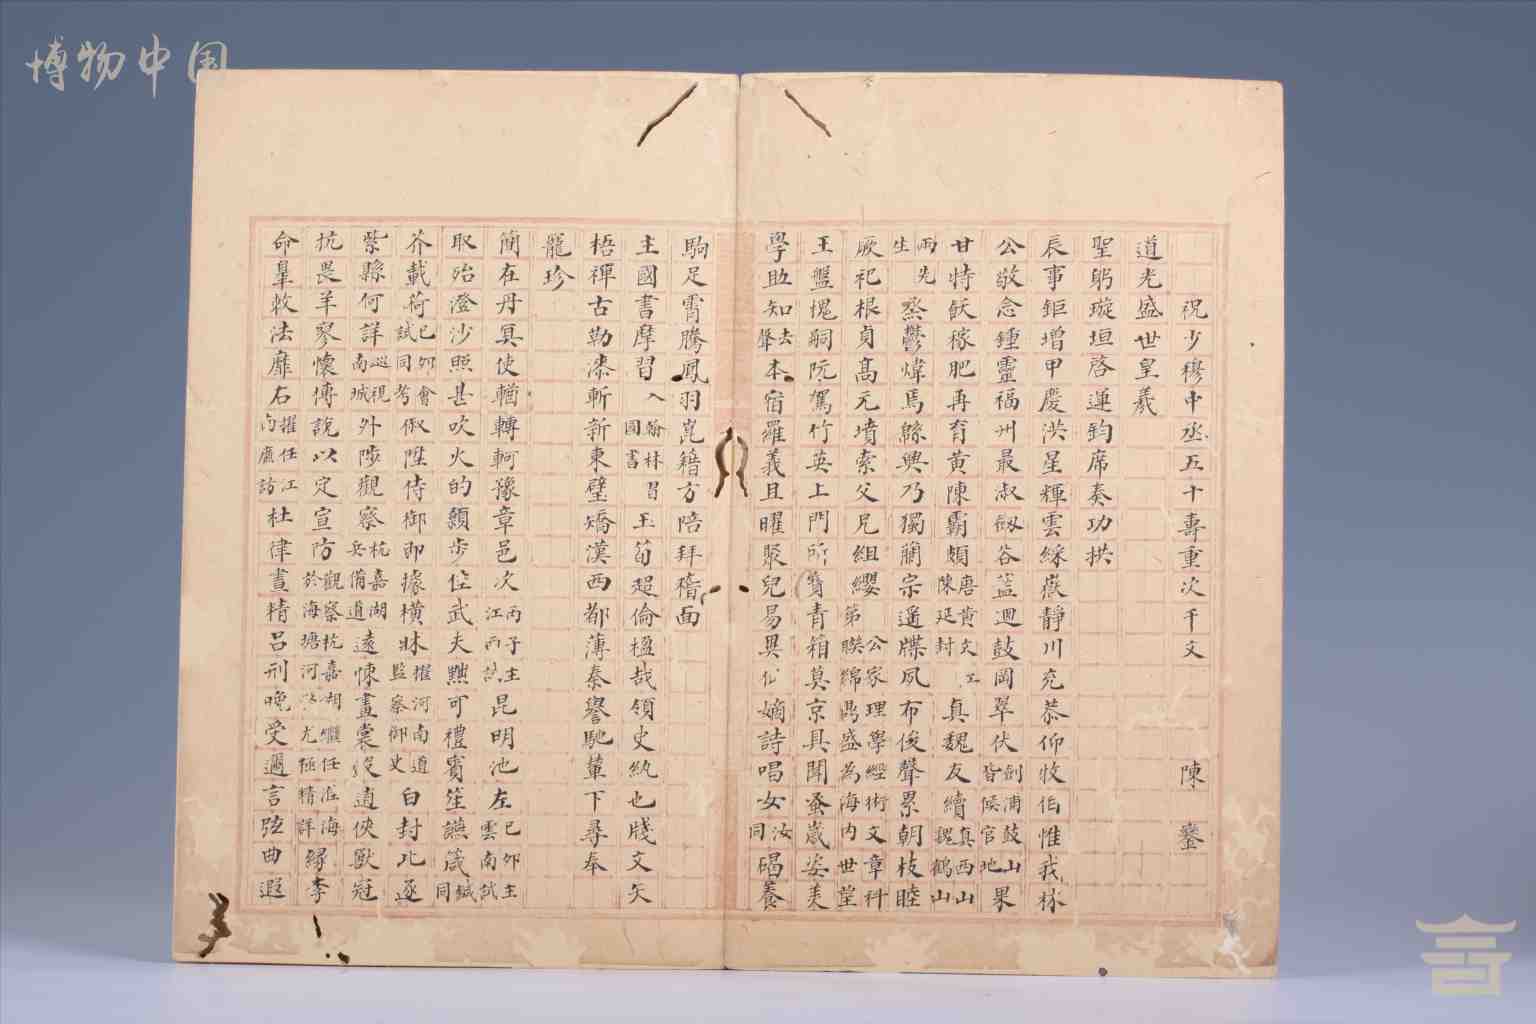 博物中国
祝少穆中丞五十壽重次千文 陳鑾
道光盛世皇羲
聖躬璇垣啓運鈞席奏功拱
辰事鉅增甲慶洪星輝雲綵嶽靜川充恭仰牧伯惟我林
公敬念鍾靈福州最淑劔谷益迴鼓岡翠伏劍浦鼓山皆候官地果
甘特飫稼肥再育黄陳霸頗唐黄文江陳延封真魏友續真西山魏鶴山
兩先生烝鬱煒馬緜興乃獨蘭宗遥牒夙布俊聲累朝枝睦
厥祀根貞高元墳索父兄組纓公家理學經術文章科第聯綿鼎盛為海内世望
王盤愧嗣阮駕竹英上門所寶青箱莫京具聞蚤嵗姿美
學助知去聲本宿羅義且曜聚兒易異仙嫡詩唱女汝同碣養
駒足霄騰鳳羽崑籍方陪拜稽面
主國書摩習入翰林習國書玉筍超倫楹哉領史紈也牋文矢
梧禪古勒漆斬新東壁矯漢西都薄秦譽馳輦下尋奉
龍珍
簡在丹冥使輶轉軻豫章邑次丙子主江西試昆明池左己卯主雲南試
取殆澄沙照甚吹火的顙步位武夫黜可禮賓笙讌箴鍼同
芥載荷己卯會試同考俶陞侍御即據横牀擢河南道監察御史白封北逐
紫縣何詳巡視南城外陟觀察杭嘉湖兵備道遠悚畫棠沒逍俠獸冠
抗畏羊寥懷傅說以定宣防觀察杭嘉湖繼任淮海於海塘河尤極精詳縁李
命羣救法靡右擢任江南廉訪杜律晝精吕刑晚受邇言弦曲遐